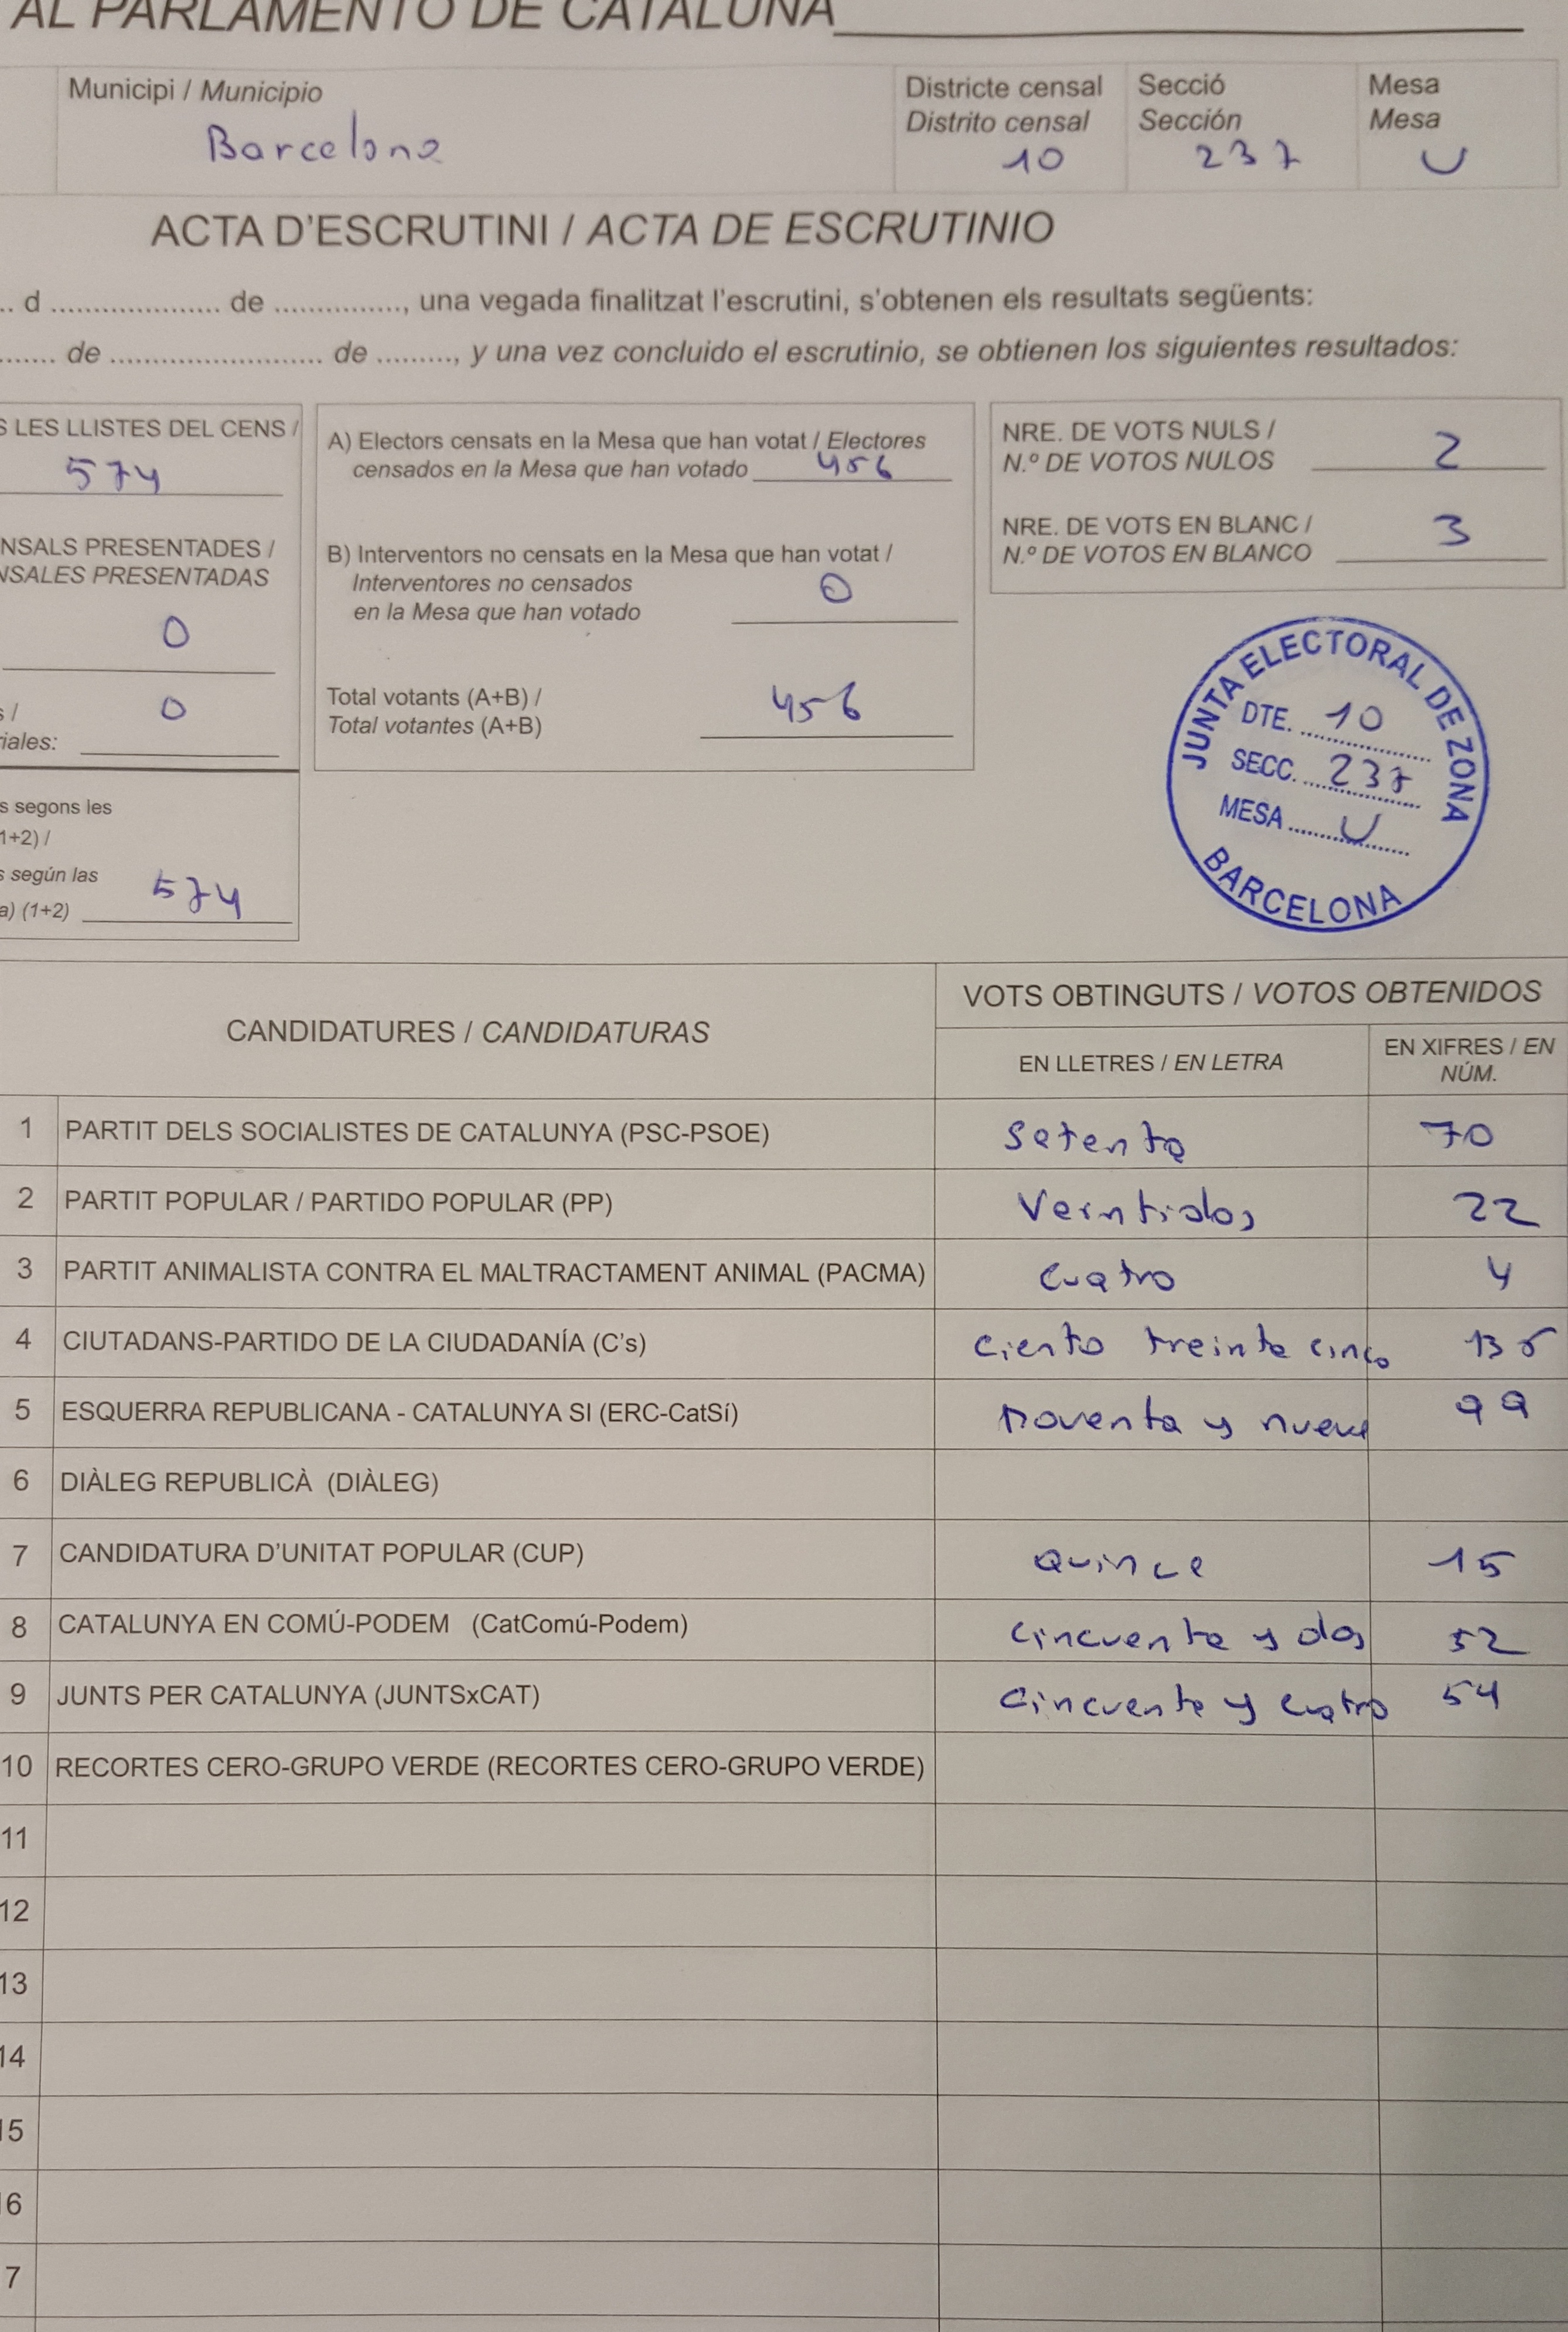 AL PARLAMENTO DE CATALUÑA
Municipi / Municipio
Barcelona
Districte censal
Distrito censal
10
Secció
Sección
237
Mesa
Mesa
U
ACTA D'ESCRUTINI / ACTA DE ESCRUTINIO
.. d .................... de ..............., una vegada finalitzat l'escrutini, s'obtenen els resultats següents:
....... de ......................... de ........., y una vez concluido el escrutinio, se obtienen los siguientes resultados:
S LES LLISTES DEL CENS /
574
NSALS PRESENTADES /
NSALES PRESENTADAS
0
s /
iales:
0
s segons les
1+2) /
s según las
a) (1+2) 574
A) Electors censats en la Mesa que han votat / Electores
censados en la Mesa que han votado 456
B) Interventors no censats en la Mesa que han votat /
Interventores no censados
en la Mesa que han votado
0
Total votants (A+B) /
Total votantes (A+B)
456
NRE. DE VOTS NULS /
N.º DE VOTOS NULOS
2
NRE. DE VOTS EN BLANC /
N.º DE VOTOS EN BLANCO
3
JUNTA ELECTORAL DE ZONA
DTE. 10
SECC. 237
MESA U
BARCELONA
CANDIDATURES / CANDIDATURAS
VOTS OBTINGUTS / VOTOS OBTENIDOS
EN LLETRES / EN LETRA
EN XIFRES / EN
NÚM.
1 PARTIT DELS SOCIALISTES DE CATALUNYA (PSC-PSOE) Setenta 70
2 PARTIT POPULAR / PARTIDO POPULAR (PP) Veintidos 22
3 PARTIT ANIMALISTA CONTRA EL MALTRACTAMENT ANIMAL (PACMA) Cuatro 4
4 CIUTADANS-PARTIDO DE LA CIUDADANÍA (C's) Ciento treinta cinco 135
5 ESQUERRA REPUBLICANA - CATALUNYA SI (ERC-CatSí) noventa y nueve 99
6 DIÀLEG REPUBLICÀ (DIÀLEG)
7 CANDIDATURA D'UNITAT POPULAR (CUP) Quince 15
8 CATALUNYA EN COMÚ-PODEM (CatComú-Podem) Cincuenta y dos 52
9 JUNTS PER CATALUNYA (JUNTSxCAT) Cincuenta y cuatro 54
10 RECORTES CERO-GRUPO VERDE (RECORTES CERO-GRUPO VERDE)
11
12
13
14
15
16
7